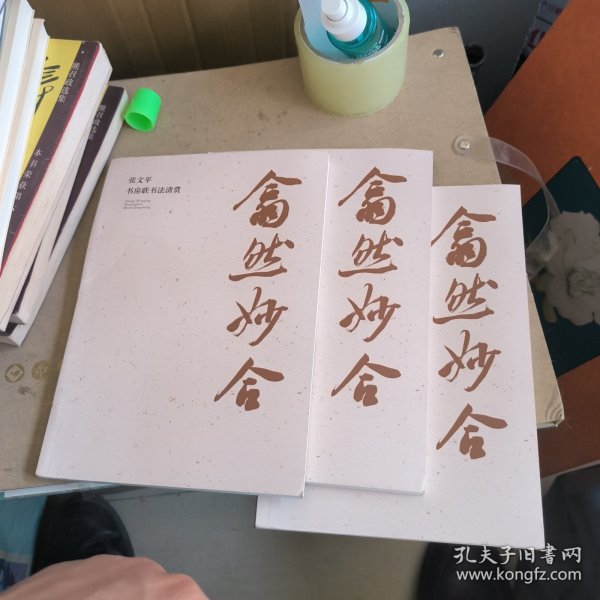 张文平
书房联书法清赏
翕然妙合
翕然妙合
翕然妙合
熊召政选集
孔夫子旧书网
www.kongfz.com